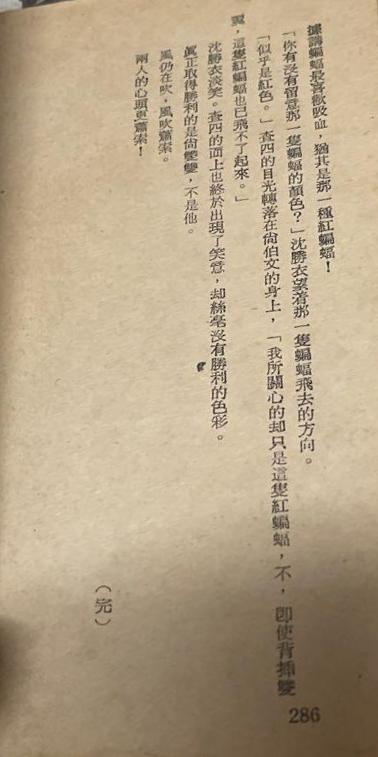 據講蝙蝠最喜歡吸血，猶其是那一種紅蝙蝠！
「你有沒有留意那一隻蝙蝠的顏色？」沈勝衣望着那一隻蝙蝠飛去的方向。
「似乎是紅色。」查四的目光轉落在尙伯文的身上，「我所關心的却只是這隻紅蝙蝠，不，即使背揷雙
翼，這隻紅蝙蝠也已飛不了起來。」
沈勝衣淡笑。查四的面上也終於出現了笑意，却絲毫沒有勝利的色彩。
眞正取得勝利的是尙雙雙，不是他。
風仍在吹，風吹蕭索。
兩人的心頭更蕭索！
（完）
286